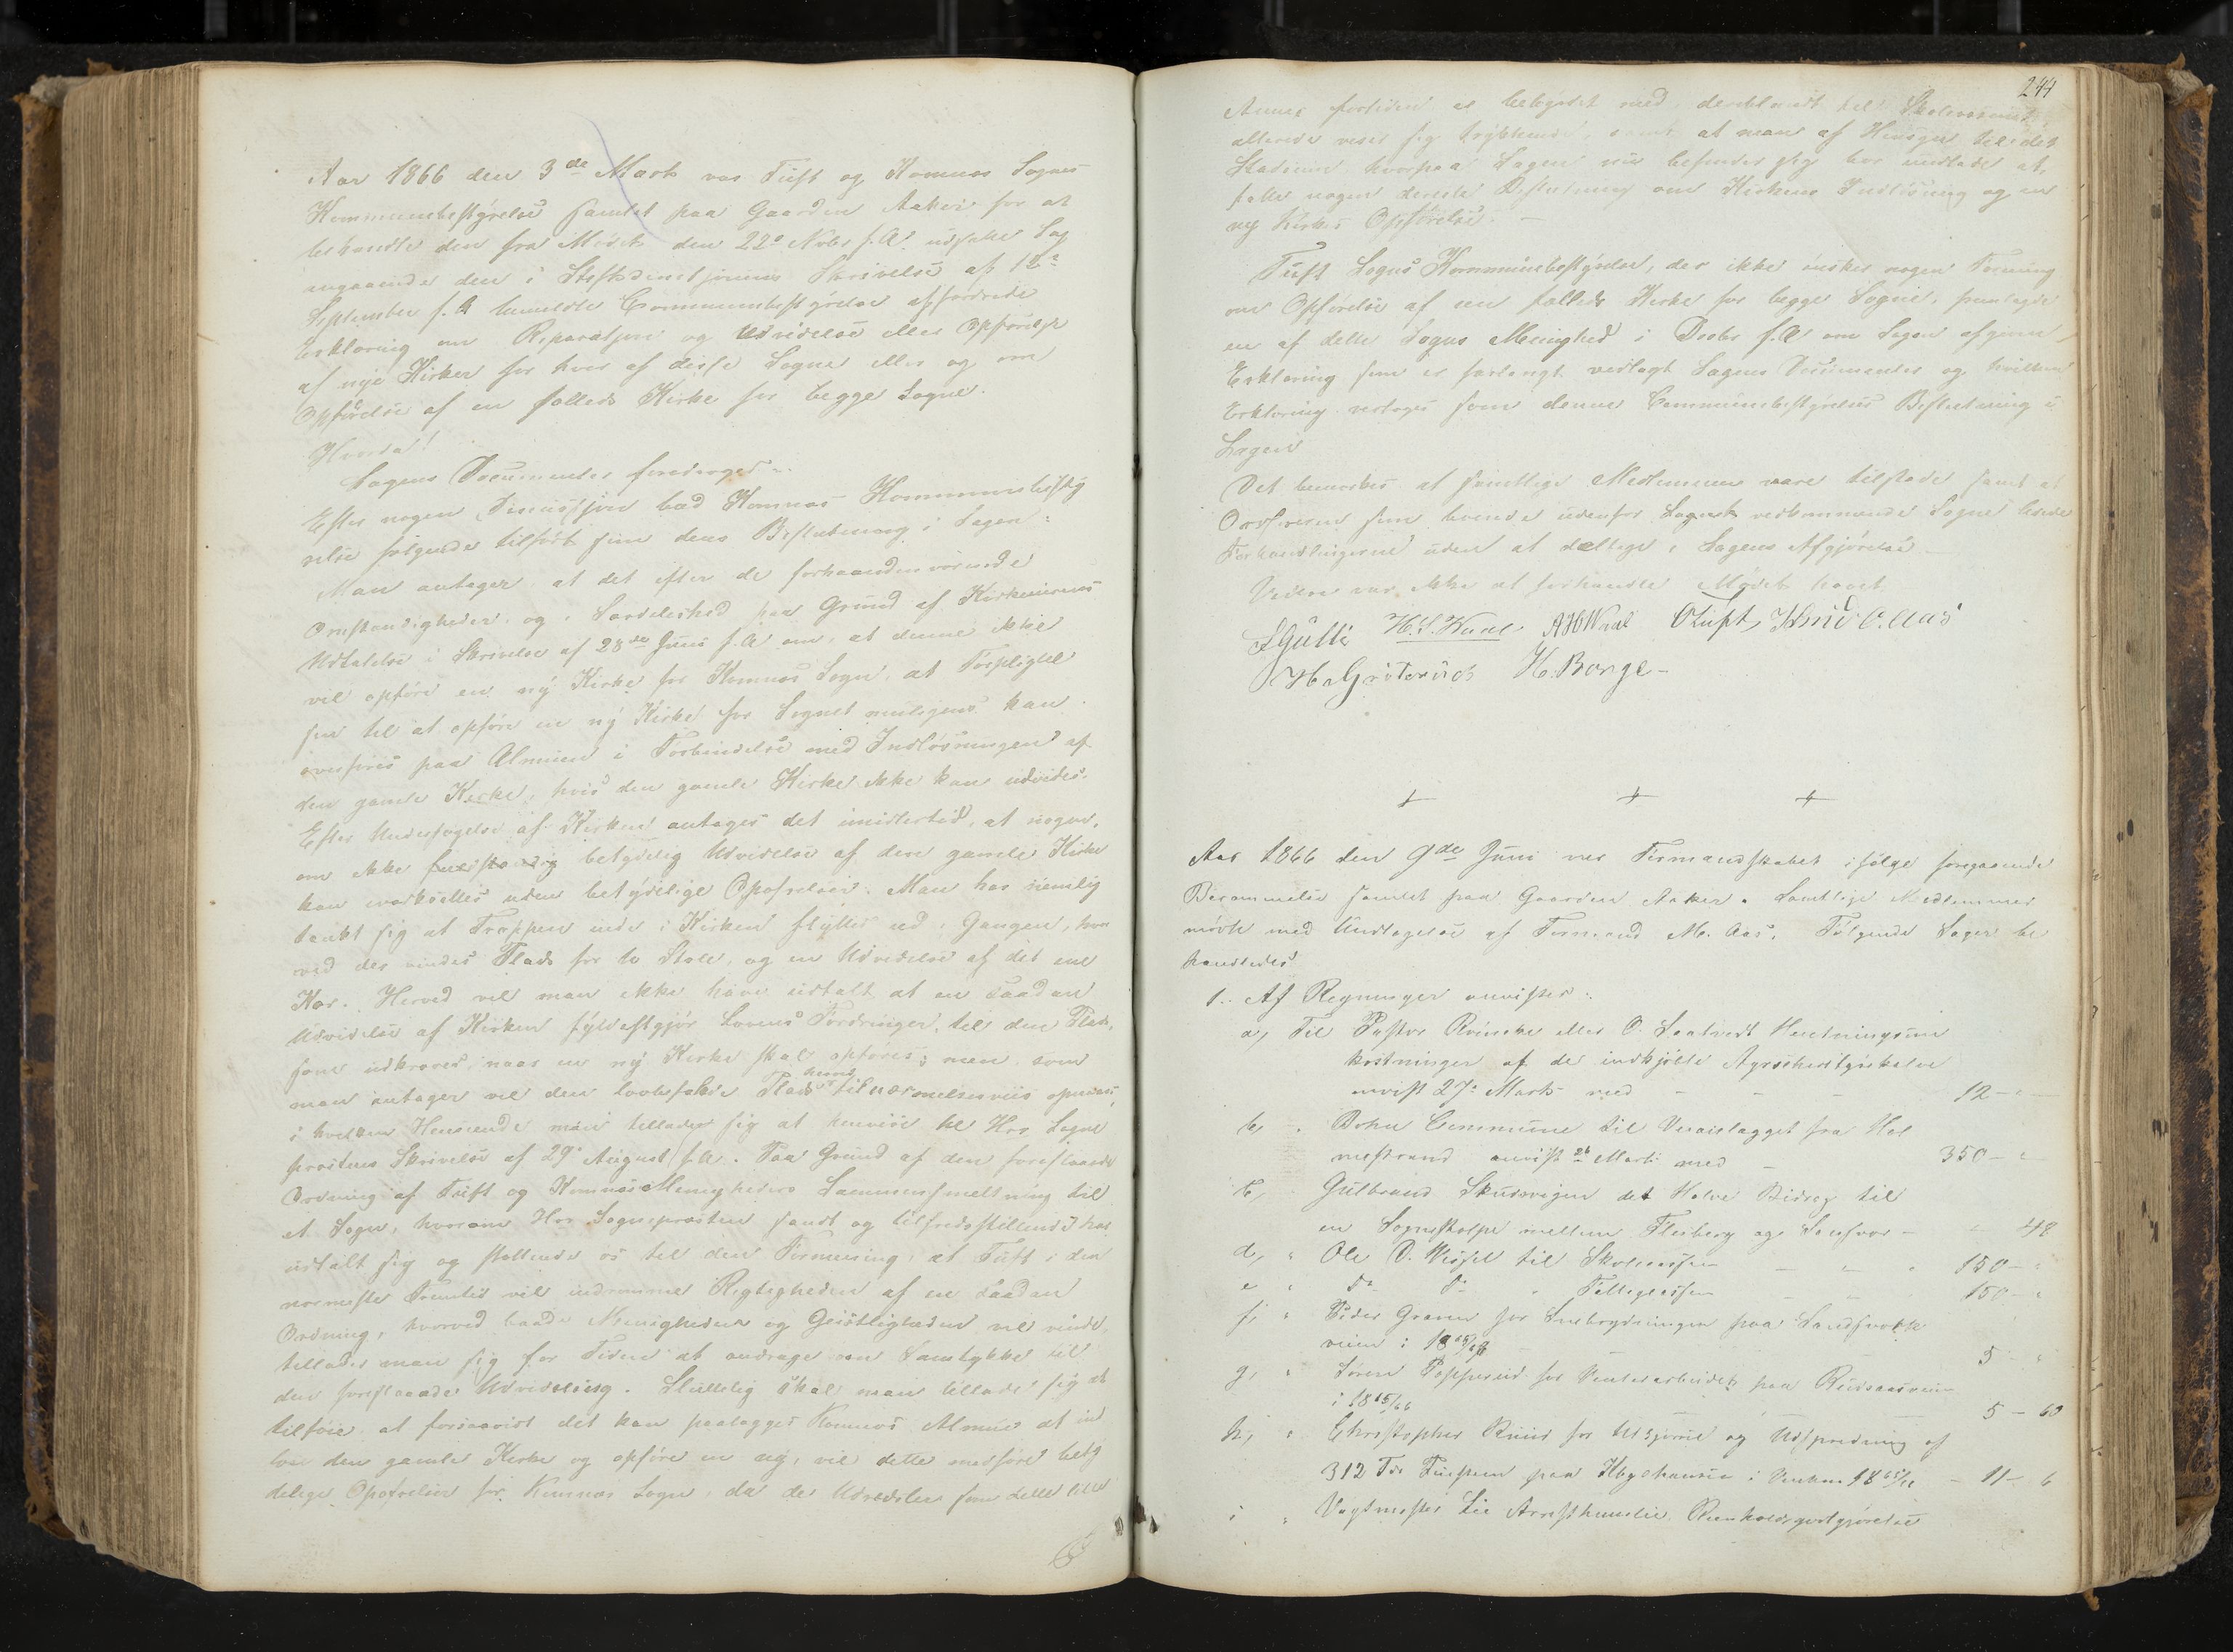 Aar 1866 den 3de Marts var Tuft og Komnæs Sognes
Kommunebestyrelse samlet paa Gaarden Aaker for at
behandle den fra Mødet den 22de Novbr f.A. udsatte Sag
angaaende den i Stiftsdirectjonens Skrivelse af 12te
September f.A. Communebestyrelse affordrede
Erklæring om Reparatjon og Udvidelse eller Opførelse
af nye Kirker for hver af disse Sogne eller og om
Opførelse af en fælleds Kirke for begge Sogne.
Hvorda!
Sagens Documenter foredroges.
Efter nogen Discussjon bad Komnæs Kommunebesty
relse følgende tilført som dens Beslutning i Sagen:
Man antager, at det efter de forhaandenværende
Omstændigheder, og i Særdeleshed paa Grund af Kirkeeierens
Udtalelse i Skrivelse af 28de Juni f.A. om, at denne ikke
vil opføre en ny Kirke for Komnæs Sogn, at Forpligtel
sen til at opføre en ny Kirke for Sognet muligens kan
overføres paa Almuen i Forbindelse med Indløsningen af
den gamle Kirke, hvis den gamle Kirke ikke kan udvides.
Efter Undersøgelse af Kirken antages det imidlertid, at nogen,
om ikke fuldstændig betydelig Udvidelse af den gamle Kirke
kan iværksættes uden betydelige Opofrelser. Man har nemlig
tænkt sig at Trappen inde i Kirken flyttes ud i Gangen, hvor
ved der vindes Plads for to Stole, og en Udvidelse af det ene
Kor. Herved vil man ikke have udtalt at en saadan
Udvidelse af Kirken fyldestgjør Lovens Fordringer, til den Plads,
som udkræves, naar en ny Kirke skal opføres; men som
man antager vil den lovbefalede Plads herved tilnærmelsesviis opnaaes,
i hvilken Henseende man tillader sig at henvise til Hrr Sogne
præstens Skrivelse af 29de August f.A. Paa Grund af den foreslaaede
Ordning af Tuft og Komnæs Menigheders Sammensmeltning til
et Sogn, hvorom Hrr Sognepræsten sandt og tilfredsstillende har
udtalt sig og støttende os til den Formening, at Tuft i den
nærmeste Fremtid vil indrømme Rigtigheden af en saadan
Ordning, hvorved baade Menigheden og Geistligheden vil vinde,
tillader man sig for Tiden at andrage om Samtykke til
den foreslaaede Udvidelse. Sluttelig skal man tillade sig at
tilføie at forsaavidt det kan paalægges Komnæs Almue at ind
løse den gamle Kirke og opføre en ny, vil dette medføre bety
delige Opofrelser for Komnæs Sogn, da de Udredsler som dette lille
244
Annex fortiden er bebyrdet med, deriblandt til Skolevæsenet,
allerede viser sig trykkende, samt at man af Hensyn til det
Stadium hvorpaa Sagen nu befinder sig bør undlade at
fatte nogen directe Beslutning om Kirkens Indløsning og en
ny Kirkes Opførelse. —
Tuft Sogns Kommunebestyrelse, der ikke ønsker nogen Forening
om Opførelse af en fælleds Kirke for begge Sogne, fremlagde
en af dette Sogns Menighed i Decbr f.A. om Sagen afgiven
Erklæring som er forlangt vedlagt Sagens Documenter og hvilken
Erklæring vedtages som denne Communebestyrelses Beslutning i
Sagen
Det bemærkes at samtlige Medlemmer vare tilstede samt at
Ordføreren som boende udenfor Sagen vedkommende Sogne ledede
Forhandlingerne uden at deeltage i Sagens Afgjørelse
Videre var ikke at forhandle Mødet hævet
Gulli H.S. Waal AHWaal OTuft, Knud O. Aas
H. Grøterud H. Borge –
Aar 1866 den 9de Juni var Formandskabet ifølge foregaaende
Berammelse samlet paa Gaarden Aaker. Samtlige Medlemmer
mødte med Undtagelse af Formand M. Aas. Følgende Sager be
handledes
1. Af Regninger anvistes:
a, Til Pastor eller O. Saatvedt Hentningsom
kostninger af de indkjøbte Ayrshire
anvist 27de Marts med - 12 –
b, " Bohn Commune til Veianlægget fra Hol
mestrand anvist 26 Marts med - 350 –
c, Gulbrand det Halve Bidrag til
en Sognestolpe mellem Flesberg og Sandsvær – - 48
d, " Ole O. til Skolecassen - 150 –
e " do do " Fattigcassen - 150 –
f, " Peder for Snebrydningen paa Sandsværk
veien i 1865/66 - 5 –
g, " Søren for Vinterarbeidet paa
i 1865/66 - 5 – 60
h, " Christopher Ruud for Udkjørsel og Udspredning af
312 Tdr paa i Vinteren 1865/66 - 11 – 6
i " Vagtmester Lie Arresthuusleie, Renholdsgodtgjørelse